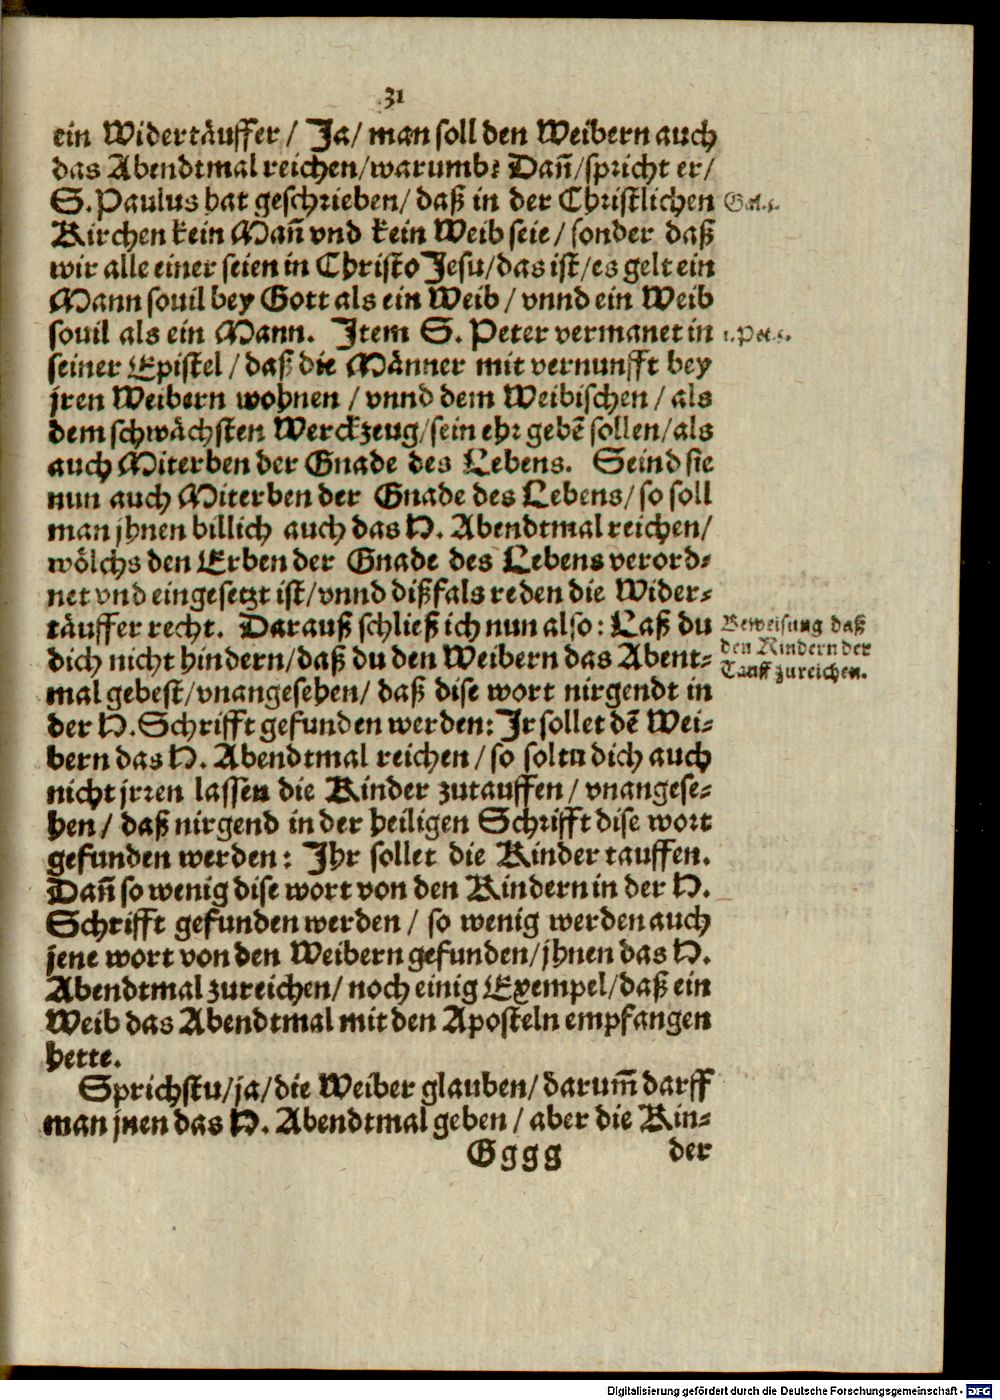 31
ein Widertäuffer / Ja / man soll den Weibern auch
das Abendtmal reichen / warumb? Dañ / spricht er /
S. Paulus hat geschrieben / daß in der Christlichen
Gal.
Kirchen kein Mañ vnd kein Weib seie / sonder daß
wir alle einer seien in Christo Jesu / das ist / es gelt ein
Mann souil bey Gott als ein Weib / vnnd ein Weib
souil als ein Mann. Item S. Peter vermanet in
1. Pet.
seiner Epistel / daß die Männer mit vernunfft bey
jren Weibern wohnen / vnnd dem Weibischen / als
dem schwächsten Werckzeug / sein ehr gebẽ sollen / als
auch Miterben der Gnade des Lebens. Seind sie
nun auch Miterben der Gnade des Lebens / so soll
man jhnen billich auch das H. Abendtmal reichen /
wölchs den Erben der Gnade des Lebens verord-
net vnd eingesetzt ist / vnnd dißfals reden die Wider-
täuffer recht. Darauß schließ ich nun also: Laß du
Beweisung daß
den Kindern der
Tauff zureichen.
dich nicht hindern / daß du den Weibern das Abent-
mal gebest / vnangesehen / daß dise wort nirgendt in
der H. Schrifft gefunden werden: Jr sollet dẽ Wei-
bern das H. Abendtmal reichen / so soltu dich auch
nicht jrren lassen die Kinder zutauffen / vnangese-
hen / daß nirgend in der heiligen Schrifft dise wort
gefunden werden: Ihr sollet die Kinder tauffen.
Dañ so wenig dise wort von den Kindern in der H.
Schrifft gefunden werden / so wenig werden auch
jene wort von den Weibern gefunden / jhnen das H.
Abendtmal zureichen / noch einig Exempel / daß ein
Weib das Abendtmal mit den Aposteln empfangen
hette.
Sprichstu / ja / die Weiber glauben / darum̃ darff
man jnen das H. Abendtmal geben / aber die Kin-
Gggg der
Digitalisierung gefördert durch die Deutsche Forschungsgemeinschaft - DFG